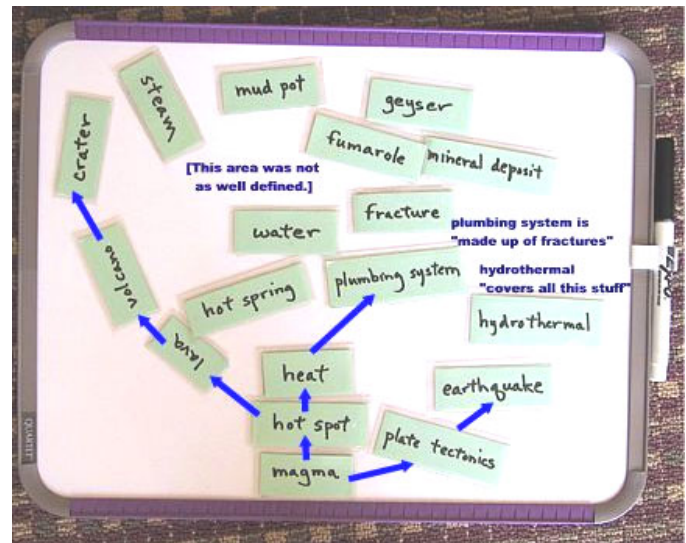 steam
mud pot
geyser
crater
fumarole
mineral deposit
[This area was not
as well defined.]
fracture
water
plumbing system is
"made up of fractures"
volcano
hot spring
plumbing system
hydrothermal
"covers all this stuff"
hydrothermal
lava
heat
earthquake
hot spot
plate tectonics
magma
QUARTET
EXPO